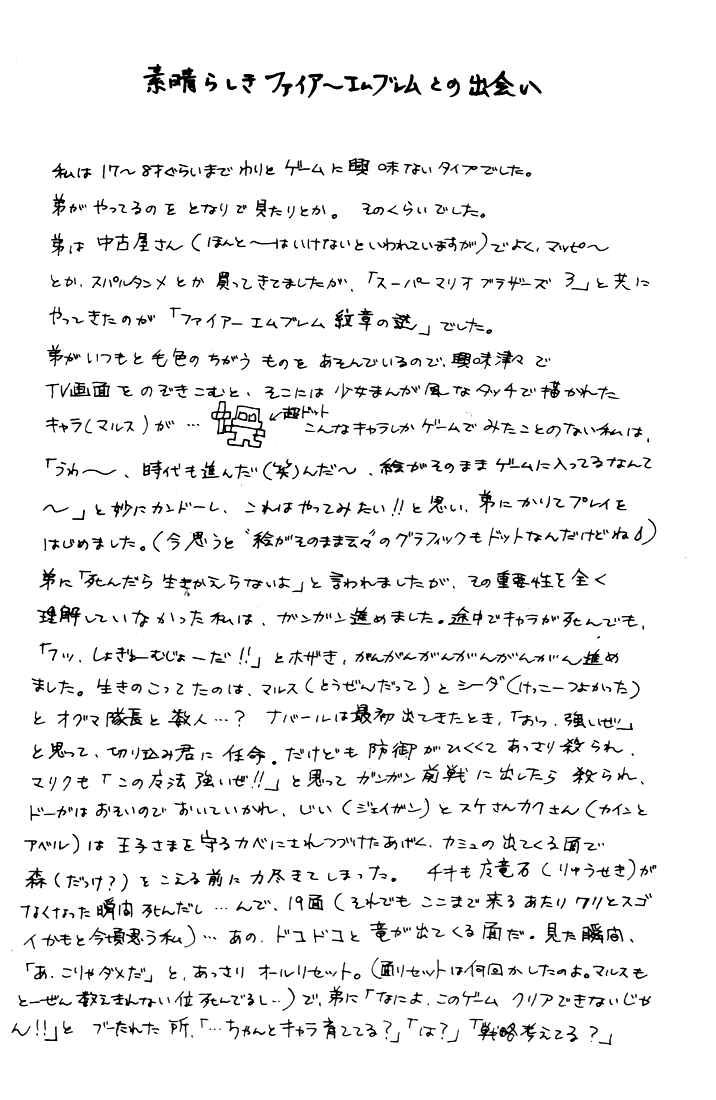 素晴らしきファイアーエムブレムとの出会い
私は17〜8才ぐらいまでわりとゲームに興味ないタイプでした。
弟がやってるのをとなりで見たりとか。そのくらいでした。
弟は中古屋さん(ほんと〜はいけないといわれていますが)でよく、マッピ〜
とか、スパルタンXとか買ってきてましたが、「スーパーマリオブラザーズ3」と共に
やってきたのが「ファイアーエムブレム紋章の謎」でした。
弟がいつもと毛色のちがうものをあそんでいるので、興味津々で
TV画面をのぞきこむと、そこには少女まんが風なタッチで描かれた
キャラ(マルス)が…
←超ドット
こんなキャラしかゲームでみたことのない私は、
「うわ〜、時代も進んだ(笑)んだ〜、絵がそのままゲームに入ってるなんて
〜」と妙にカンドーし、これはやってみたい!!と思い、弟にかりてプレイを
はじめました。(今思うと"絵がそのまま云々"のグラフィックもドットなんだけどね)
弟に「死んだら生きかえらないよ」と言われましたが、その重要性を全く
理解していなかった私は、ガンガン進めました。途中でキャラが死んでも、
「フッ、しょぎょーむじょーだ!!」とホザき、がんがんがんがんがんがん進め
ました。生きのこってたのは、マルス(とうぜんだって)とシーダ(けっこーつよかった)
とオグマ隊長と数人…?ナバールは最初出てきたとき、「おっ、強いぜ」
と思って、切り込み君に任命。だけども防御がひくくてあっさり殺られ、
マリクも「この魔法強いぜ!!」と思ってガンガン前戦に出したら殺られ、
ドーガはおそいのでおいていかれ、じい(ジェイガン)とスケさんカクさん(カインと
アベル)は王子さまを守るカベにされつづけたあげく、カミュの出てくる面で
森(だっけ?)をこえる前に力尽きてしまった。チキも魔竜石(りゅうせき)が
なくなった瞬間死んだし…んで、19面(それでもここまで来るあたりワリとスゴ
イかもと今頃思う私)…あの、ドコドコと竜が出てくる面だ。見た瞬間、
「あ、こりゃダメだ」と、あっさりオールリセット。(面リセットは何回かしたのよ。マルスも
とーぜん数えきれない位死んでるし…)で、弟に「なによ、このゲームクリアできないじゃ
ん!!」とブーたれた所、「…ちゃんとキャラ育ててる?」「は?」「戦略考えてる?」